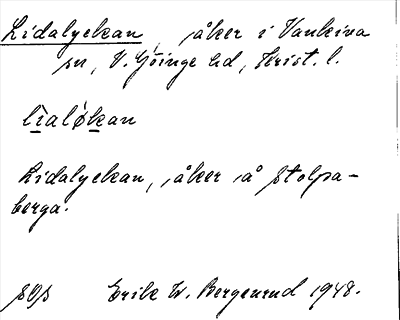 Lidalyckan, åker i Vankiva
sn, V. Göinge hd, Krist. l.
lìaløkan
Lidalyckan, åker å Stolpa-
berga.
Erik W. Bergenrud 1948.